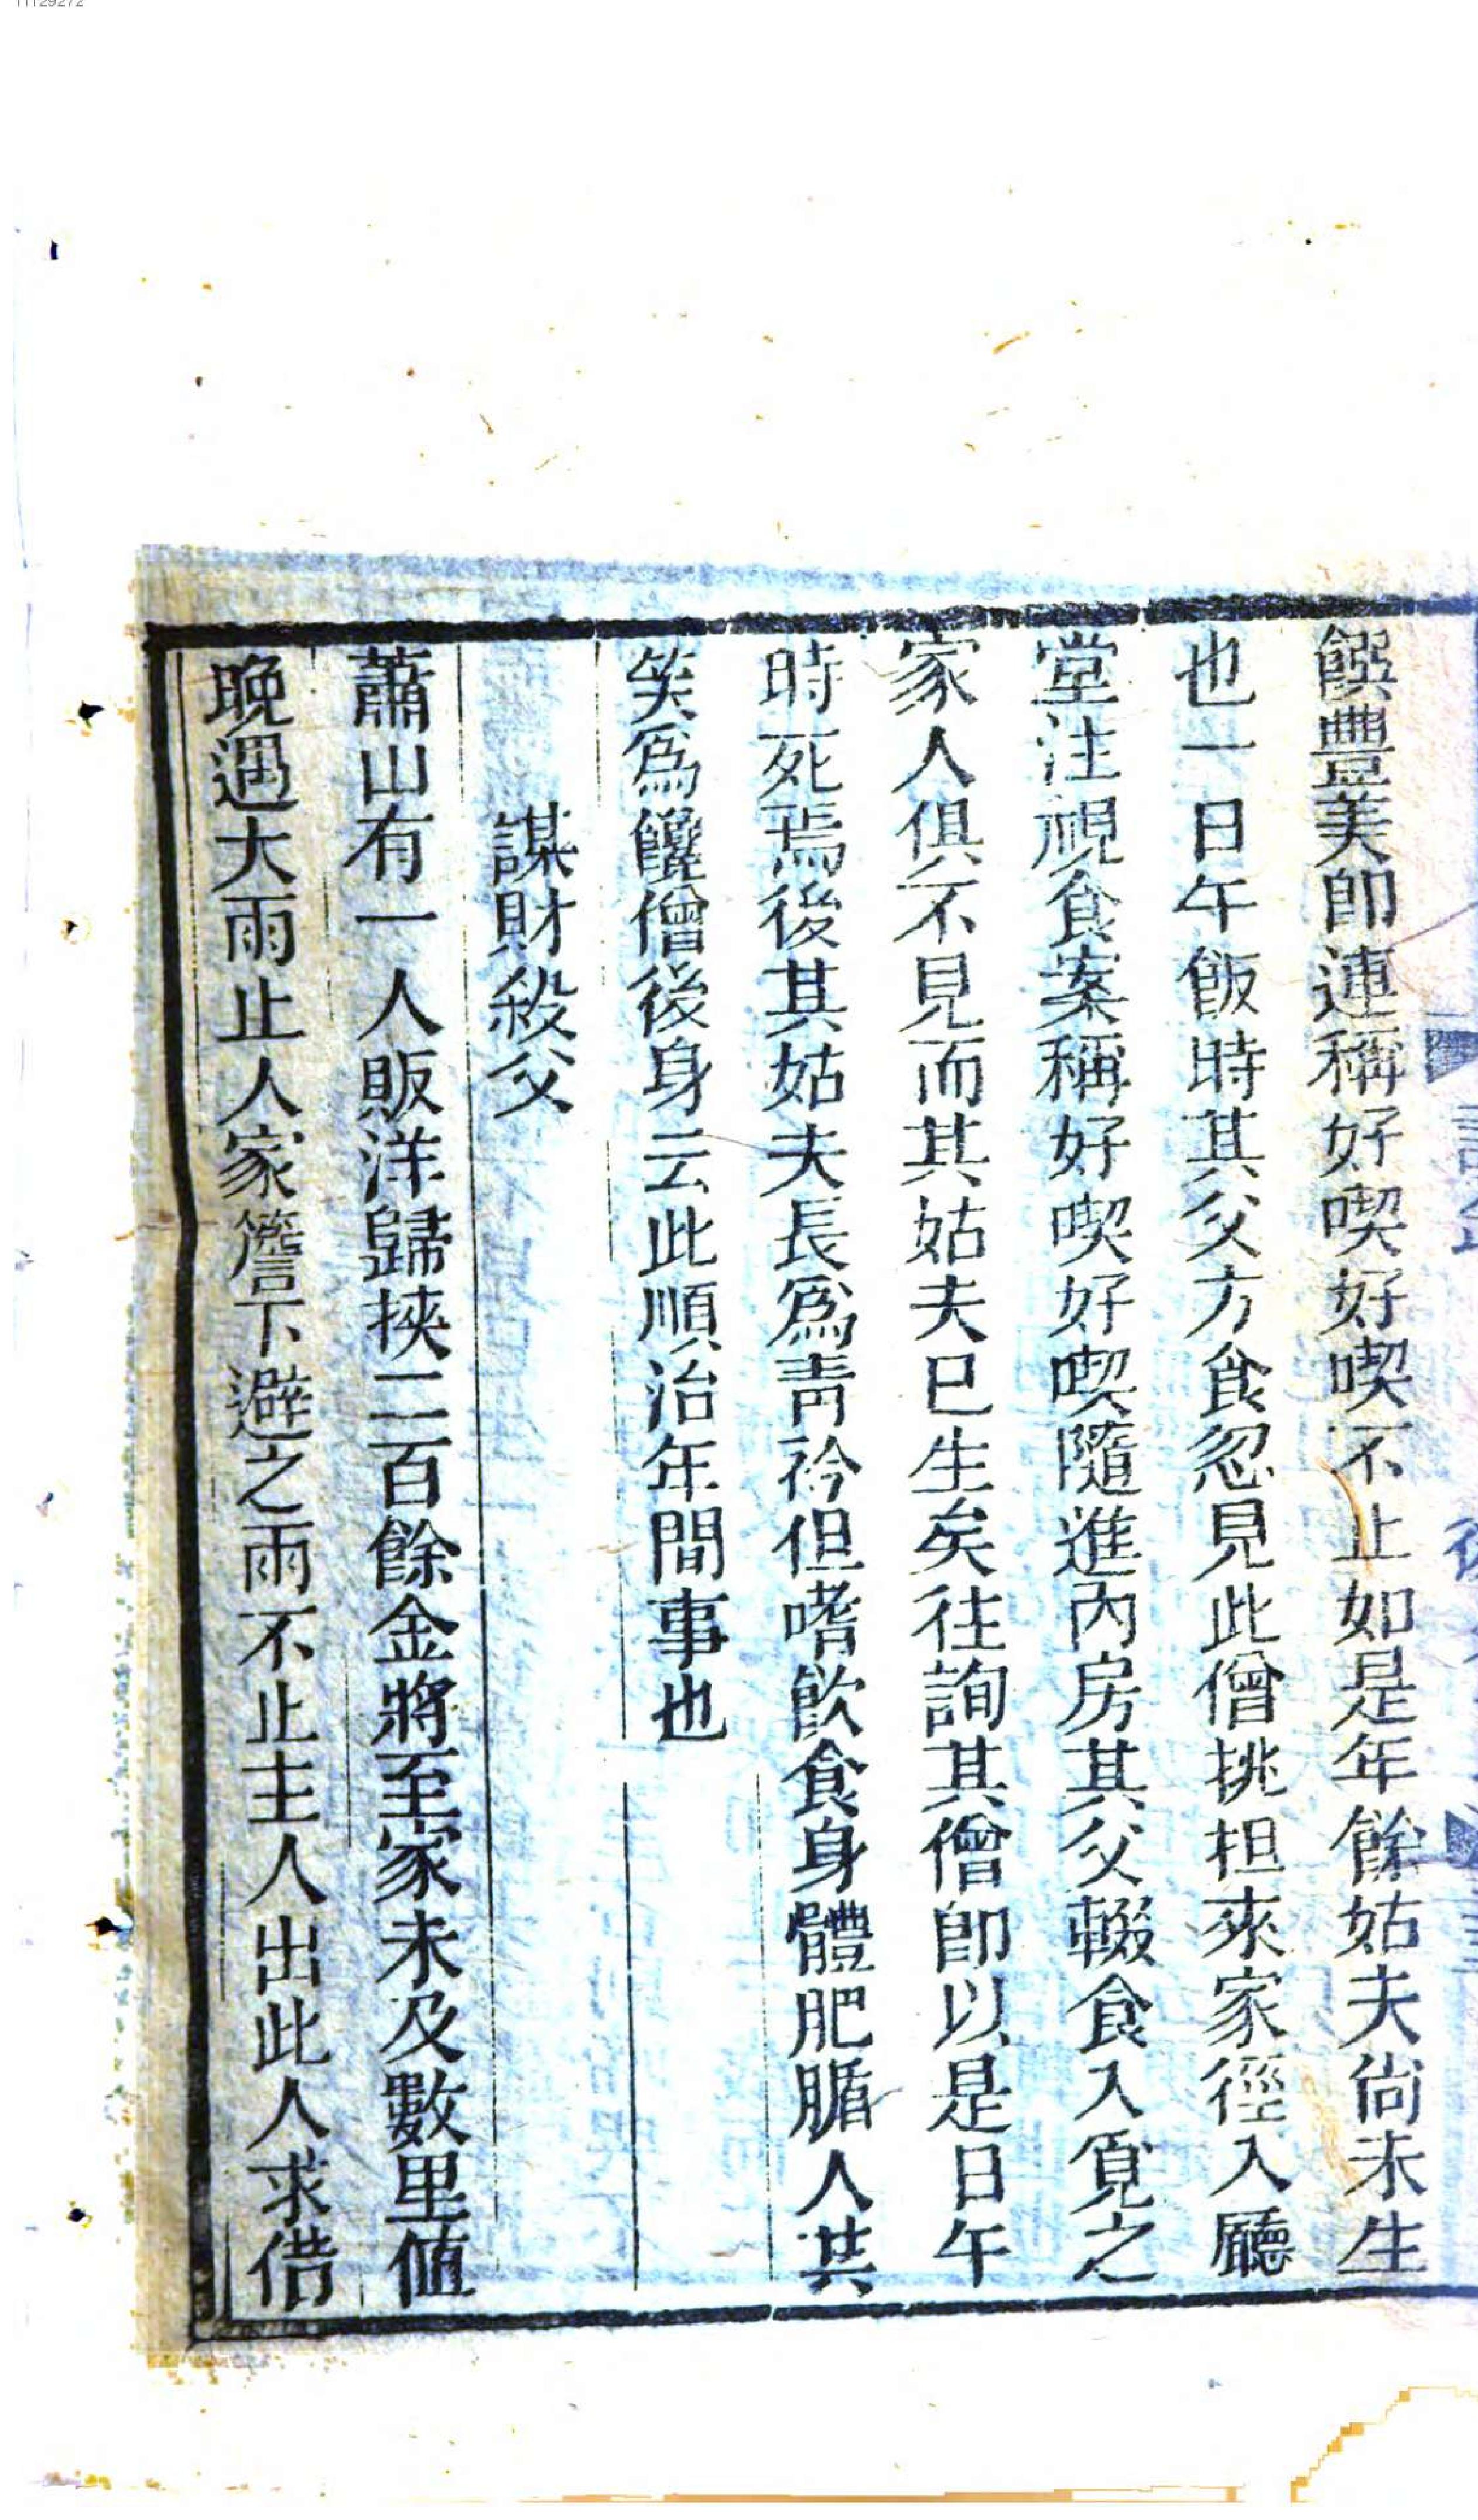 饌豐美即連稱好喫好喫不止如是年餘姑夫尙未生
也一日午飯時其父方食忽見此僧挑担來家徑入廳
堂注視食案稱好喫好喫隨進內房其父輟食入覓之
家人俱不見而其姑夫已生矣往詢其僧即以是日午
時死焉後其姑夫長爲靑衿但嗜飮食身體肥腯人共
笑爲饞僧後身云此順治年間事也
謀財殺父
蕭山有一人販洋歸挾二百餘金將至家未及數里值
晚遇大雨止人家簷下避之雨不止主人出此人求借